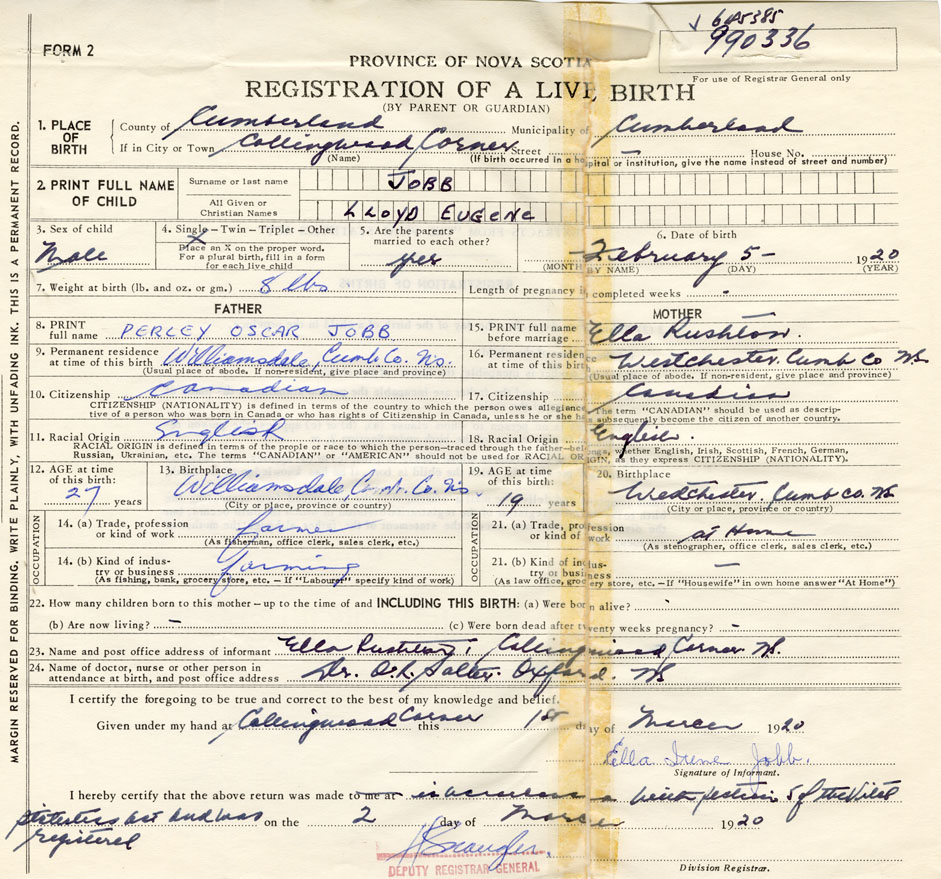 6A5385
990336
FORM 2
PROVINCE OF NOVA SCOTIA
For use of Registrar General only
REGISTRATION OF A LIVE BIRTH
(BY PARENT OR GUARDIAN)
1. PLACE OF BIRTH
County of Cumberland Municipality of Cumberland
If in City or Town Collingwood Corner Street – House No.
(Name) (If birth occurred in a hospital or institution, give the name instead of street and number)
2. PRINT FULL NAME OF CHILD
Surname or last name JOBB
All Given or Christian Names LLOYD EUGENE
3. Sex of child Male
4. Single – Twin – Triplet – Other
X
Place an X on the proper word.
For a plural birth, fill in a form
for each live child
5. Are the parents
married to each other?
yes
6. Date of birth
February 5 – 1920
(MONTH BY NAME) (DAY) (YEAR)
7. Weight at birth (lb. and oz. or gm.) 8 lbs Length of pregnancy in completed weeks -
FATHER
MOTHER
8. PRINT full name PERLEY OSCAR JOBB
15. PRINT full name before marriage Ella Rushton.
9. Permanent residence at time of this birth Williamsdale, Cumb Co. Ns.
(Usual place of abode. If non-resident, give place and province)
16. Permanent residence at time of this birth Westchester. Cumb Co NS
(Usual place of abode. If non-resident, give place and province)
10. Citizenship Canadian
17. Citizenship Canadian
CITIZENSHIP (NATIONALITY) is defined in terms of the country to which the person owes allegiance. The term "CANADIAN" should be used as descrip-
tive of a person who was born in Canada or who has rights of Citizenship in Canada, unless he or she has subsequently become the citizen of another country.
11. Racial Origin English
18. Racial Origin English.
RACIAL ORIGIN is defined in terms of the people or race to which the person–traced through the father–belongs, whether English, Irish, Scottish, French, German,
Russian, Ukrainian, etc. The terms "CANADIAN" or "AMERICAN" should not be used for RACIAL ORIGIN, as they express CITIZENSHIP (NATIONALITY).
12. AGE at time of this birth: 27 years
13. Birthplace
Williamsdale, Cumb. Co. Ns.
(City or place, province or country)
19. AGE at time of this birth: 19 years
20. Birthplace
Westchester. Cumb Co. NS
(City or place, province or country)
OCCUPATION
14. (a) Trade, profession or kind of work farmer
(As fisherman, office clerk, sales clerk, etc.)
14. (b) Kind of industry or business Farming
(As fishing, bank, grocery store, etc. – If "Labourer" specify kind of work)
OCCUPATION
21. (a) Trade, profession or kind of work at Home
(As stenographer, office clerk, sales clerk, etc.)
21. (b) Kind of industry or business –
(As law office, grocery store, etc. – If "Housewife" in own home answer "At Home")
22. How many children born to this mother – up to the time of and INCLUDING THIS BIRTH: (a) Were born alive? -
(b) Are now living? – (c) Were born dead after twenty weeks pregnancy? -
23. Name and post office address of informant Ella Rushton, Collingwood Corner NS.
24. Name of doctor, nurse or other person in
attendance at birth, and post office address Dr. Salter. Oxford. NS
I certify the foregoing to be true and correct to the best of my knowledge and belief.
Given under my hand at Collingwood Corner this 1st day of March 1920
Ella Irene Jobb.
Signature of Informant.
I hereby certify that the above return was made to me at of the Vital
Statistics Act and was
registered
on the 2 day of March 1920
DEPUTY REGISTRAR GENERAL
Division Registrar.
MARGIN RESERVED FOR BINDING. WRITE PLAINLY, WITH UNFADING INK. THIS IS A PERMANENT RECORD.